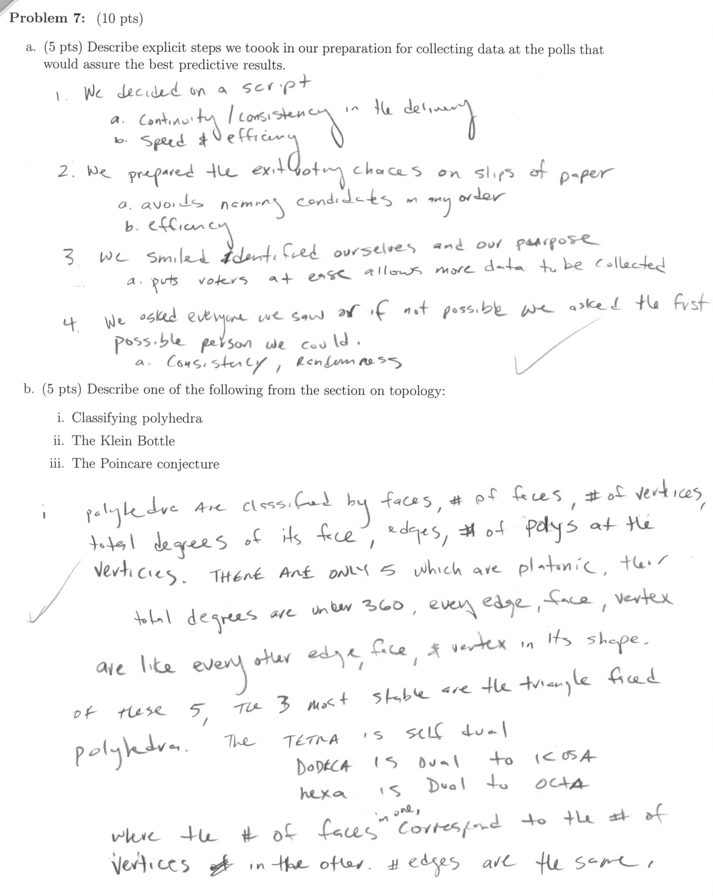 Problem 7: (10 pts)
a. (5 pts) Describe explicit steps we toook in our preparation for collecting data at the polls that
would assure the best predictive results.
1. We decided on a script
a. Continuity / consistency in the delivery
b. Speed & efficieny
2. We prepared the exit voting choces on slips of paper
a. avoids naming candidates in any order
b. efficancy
3. We smiled identified ourselves and our purpose
a. puts voters at ease allows more data to be collected
4. We asked everyone we saw or if not possible we asked the first
possible person we could.
a. Consistency, Randomness
b. (5 pts) Describe one of the following from the section on topology:
i. Classifying polyhedra
ii. The Klein Bottle
iii. The Poincare conjecture
i polyhedra are classified by faces, # of faces, # of vertices,
total degrees of its face, edges, # of polys at the
verticies. THERE ARE ONLY 5 which are platonic, their
total degrees are under 360, every edge, face, vertex
are like every other edge, face, & vertex in its shape.
of these 5, The 3 most stable are the triangle faced
polyhedra. The TETRA is self dual
DODECA IS Dual to ICOSA
hexa is Dual to OCTA
where the # of faces in one, correspond to the # of
vertices in the other. # edges are the same.